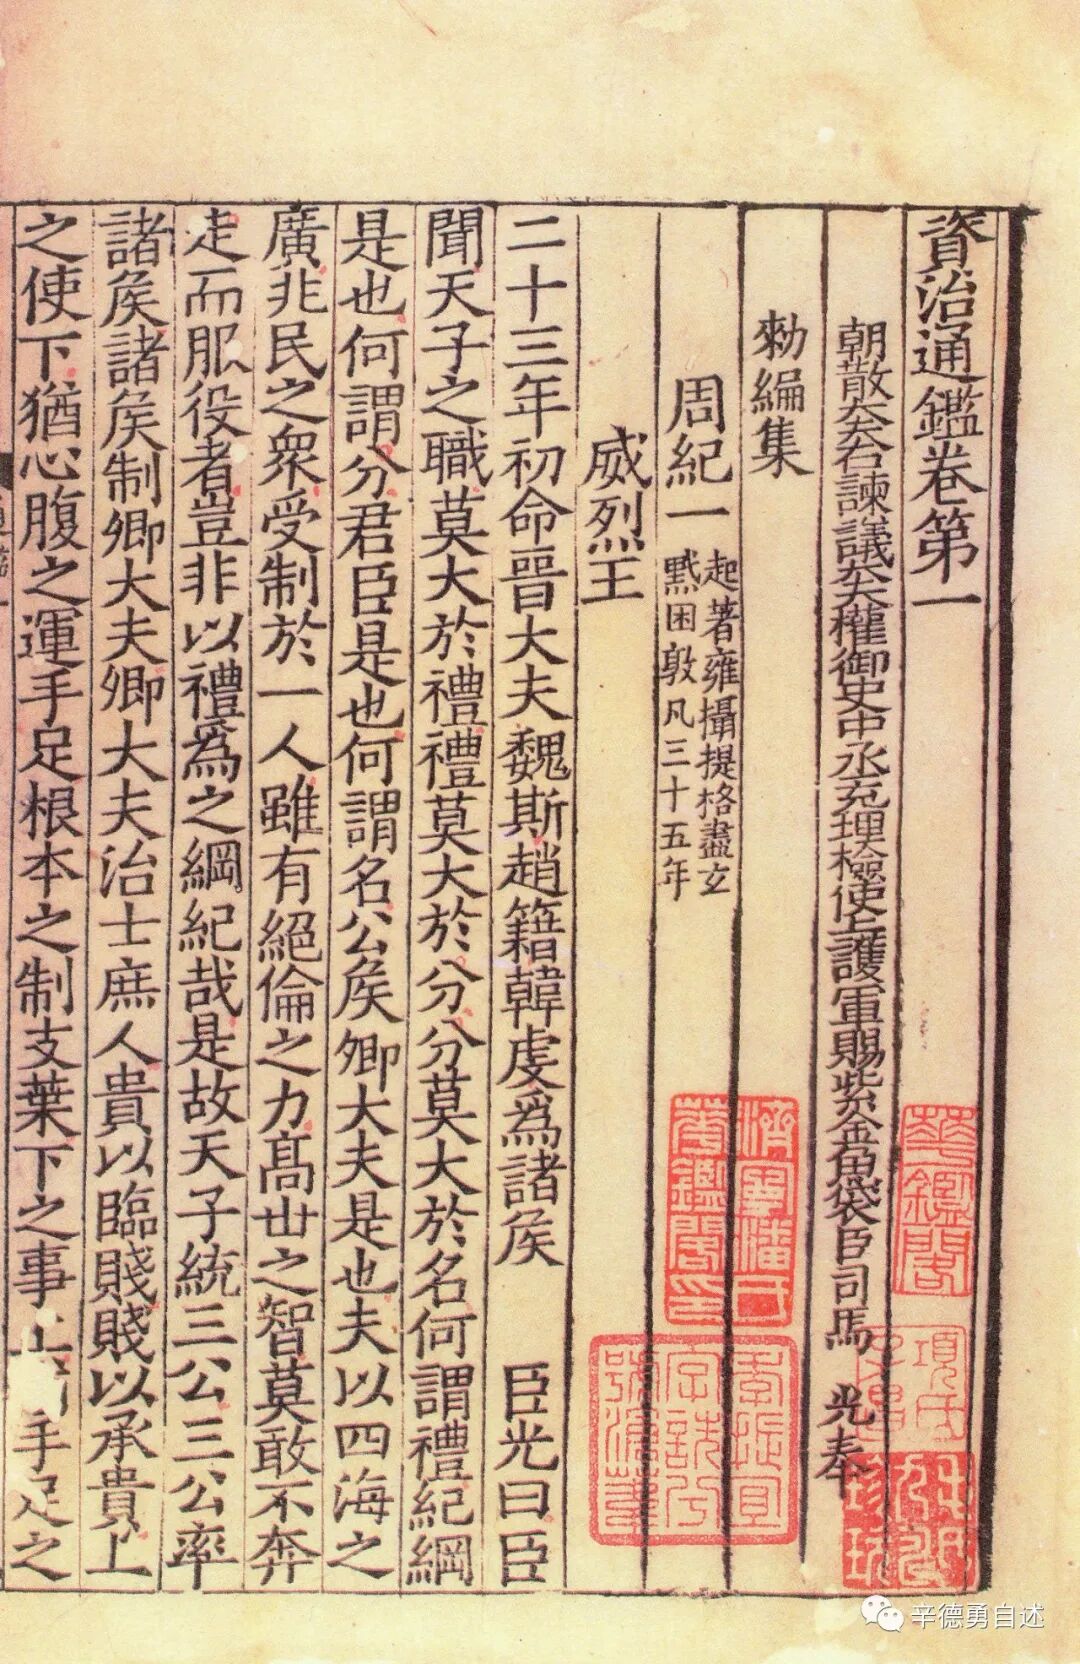 資治通鑑卷第一
朝散大夫右諫議大夫權御史中丞充理檢使上護軍賜紫金魚袋臣司馬 光奉
勑編集
周紀一
起著雍攝提格盡玄
黓困敦凡三十五年
威烈王
二十三年初命晉大夫魏斯趙籍韓虔爲諸侯 臣光曰臣
聞天子之職莫大於禮禮莫大於分分莫大於名何謂禮紀綱
是也何謂分君臣是也何謂名公侯卿大夫是也夫以四海之
廣兆民之衆受制於一人雖有絶倫之力髙世之智莫敢不奔
走而服役者豈非以禮爲之綱紀哉是故天子統三公三公率
諸侯諸侯制卿大夫卿大夫治士庶人貴以臨賤賤以承貴上
之使下猶心腹之運手足根本之制支葉下之事上 手足之
華鑑閣
濟寧潘氏
華鑑閣印
季振宜
字詵兮
號滄葦
辛德勇自述